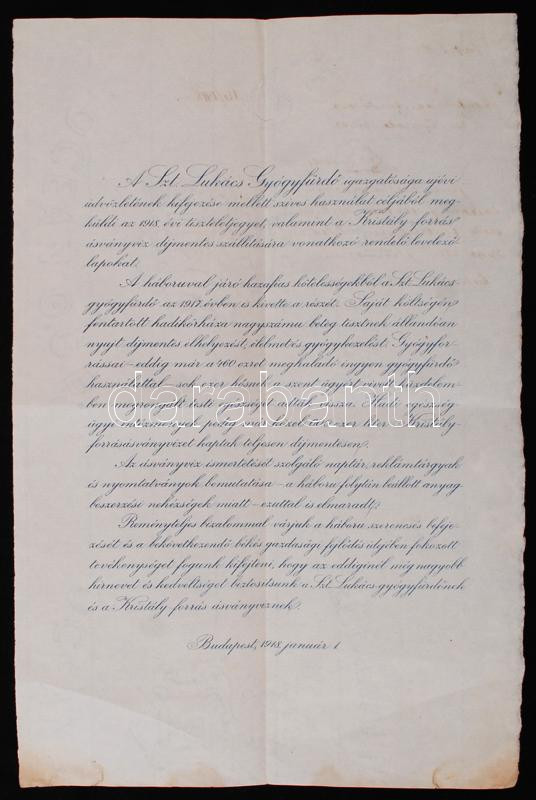 A Szt. Lukács Gyógyfürdő igazgatósága ujévi
üdvözletének kifejezése mellett szives használat céljából meg-
küldi az 1918. évi tiszteletjegyet, valamint a Kristály-forrás
ásványviz díjmentes szállítására vonatkozó rendelő levelező
lapokat.
A háboruval járó hazafias kötelességekből a Szt. Lukács-
gyógyfürdő az 1917. évben is kivette a részét. Saját költségén
fentartott hadikórháza nagyszámu beteg tisztnek állandóan
nyujt díjmentes elhelyezést, élelmet és gyógykezelést. Gyógyfor-
rásai – eddig már a 460 ezret meghaladó ingyen gyógyfürdő
használattal – sok ezer hősnek a szent ügyért vívott küzdelem-
ben megrongált testi épségét adták vissza. Hadi egészség-
ügyi intézmények pedig sok ezer liter Kristály-
forrásásványvizet kaptak teljesen díjmentesen.
Az ásványviz ismertetését szolgáló naptár, reklámtárgyak
és nyomtatványok bemutatása – a háboru folytán beállott anyag
beszerzési nehézségek miatt – ezuttal is elmaradt.
Reményteljes bizalommal várjuk a háboru szerencsés befeje-
zését és a bekövetkezendő békés gazdasági fejlődés idejében fokozott
tevékenységet fogunk kifejteni, hogy az eddiginél még nagyobb
hírnevet és kedveltséget biztosítsunk a Szt. Lukács-gyógyfürdőnek
és a Kristály-forrás ásványviznek.
Budapest, 1918. január 1
darabanth